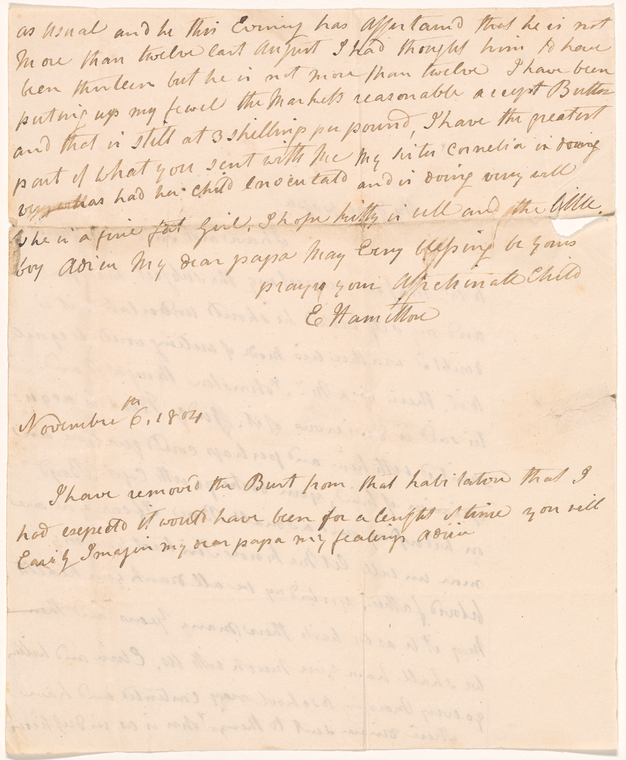 as usual and he this Evening has Assertaind that he is not
more than twelve last August I had thought him to have
been thirteen but he is not more than twelve I have been
puting up my fewel the Markets reasonable accept Butter
and that is still at 3 shellings per pound, I have the greatest
part of what you sent with me My sister Cornelia is doing
has had her Child Enoculatd and is doing very well
she is a fine fat Girl, I hope kitty is well and the little
boy Adieu My dear papa May Evry blessing be yours
prays your Affectinate Child
E Hamilton
Novembre 6th, 1804
I have removed the Bust from that habitation that I
had expectd it would have been for a lenght of time you will
Easily Imagin my dear papa my fealings Adieu